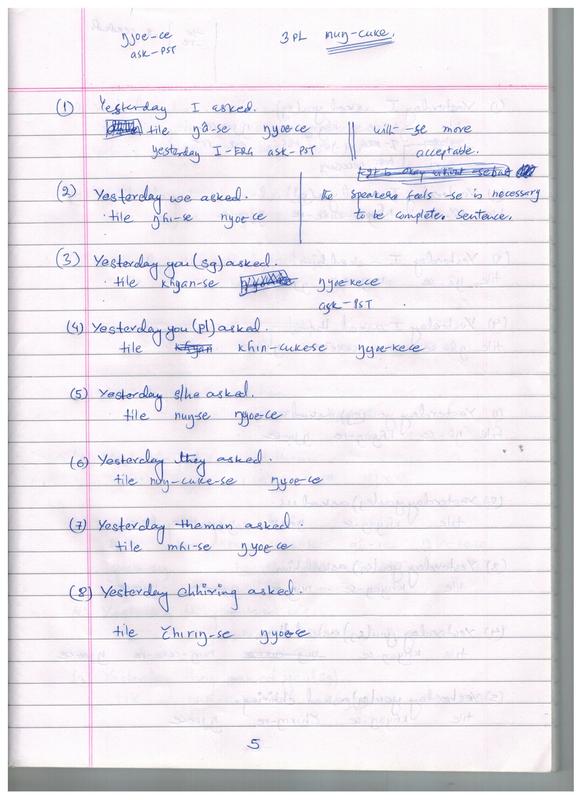 ŋyoe-ce
ask-PST
3PL nuŋ-cuke.
(1) Yesterday I asked.
tile ŋâ-se ŋyoe-ce
yesterday I-ERG ask-PST
with -se more
acceptable.
(2) Yesterday we asked.
tile ŋhi-se ŋyoe-ce
the speakers feels -se is necessary
to be complete sentence.
(3) Yesterday you (sg) asked.
tile khyan-se ŋyoe-kece
ask-PST
(4) Yesterday you (pl) asked.
tile khin-cukese ŋyoe-kece
(5) Yesterday s/he asked.
tile nuŋ-se ŋyoe-ce
(6) Yesterday they asked.
tile nuŋ-cuke-se ŋyoe-ce
(7) Yesterday the man asked.
tile mhi-se ŋyoe-ce
(8) Yesterday chhiring asked.
tile čhiriŋ-se ŋyoe-se
5